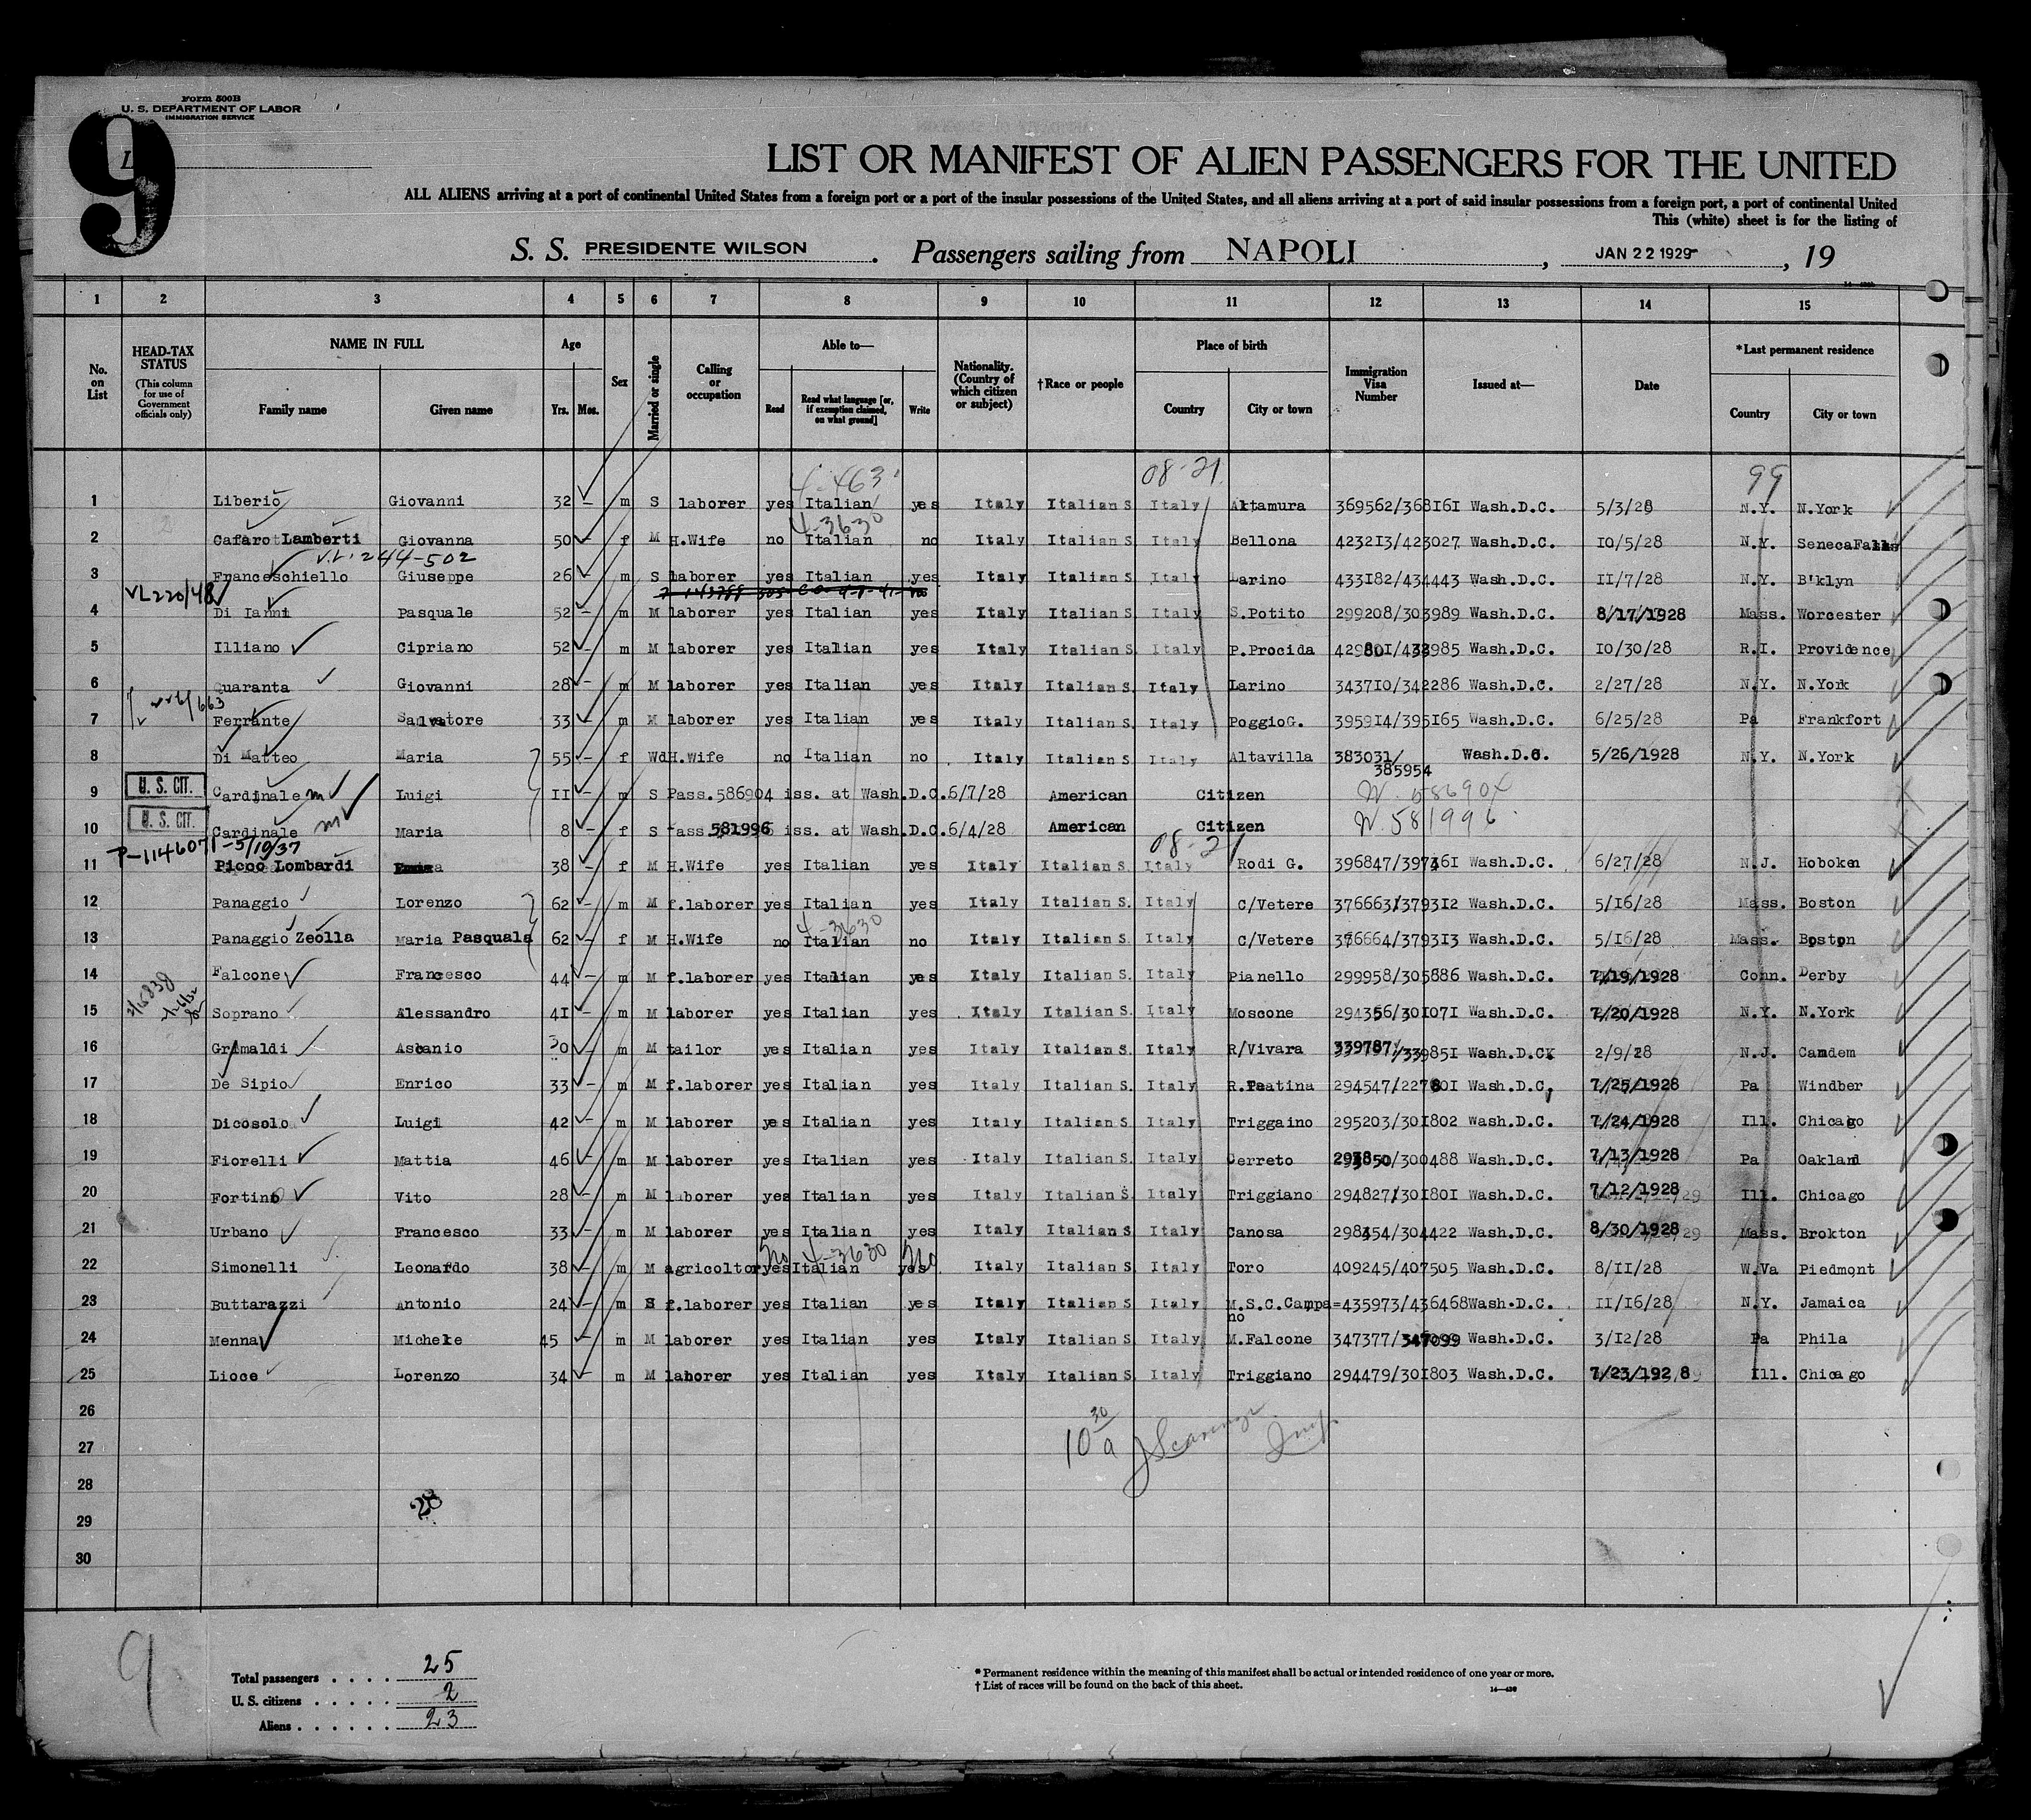 Form 500B
U. S. DEPARTMENT OF LABOR
IMMIGRATION SERVICE
9
LIST OR MANIFEST OF ALIEN PASSENGERS FOR THE UNITED
ALL ALIENS arriving at a port of continental United States from a foreign port or a port of the insular possessions of the United States, and all aliens arriving at a port of said insular possessions from a foreign port, a port of continental United
This (white) sheet is for the listing of
S. S. PRESIDENTE WILSON . Passengers sailing from NAPOLI , JAN 22 1929 , 19
1 2 3 4 5 6 7 8 9 10 11 12 13 14 15
No. on List
HEAD-TAX STATUS (This column for use of Government officials only)
NAME IN FULL Family name Given name
Age Yrs. Mos.
Sex
Married or single
Calling or occupation
Able to— Read Read what language [or, if exemption claimed, on what ground] Write
Nationality. (Country of which citizen or subject)
†Race or people
Place of birth Country City or town
Immigration Visa Number
Issued at—
Date
*Last permanent residence Country City or town
08-21 99
1 Liberio Giovanni 32 - m S laborer yes Italian yes Italy Italian S Italy Altamura 369562/368161 Wash.D.C. 5/3/28 N.Y. N.York
4-3630
2 Cafaro Lamberti Giovanna 50 - f M H.Wife no Italian no Italy Italian S Italy Bellona 423213/423027 Wash.D.C. 10/5/28 N.Y. SenecaFalls
V.L. 244-502
3 Franceschiello Giuseppe 26 - m S laborer yes Italian yes Italy Italian S Italy Larino 433182/434443 Wash.D.C. 11/7/28 N.Y. B'klyn
VL220/48
4 Di Ianni Pasquale 52 - m M laborer yes Italian yes Italy Italian S. Italy S.Potito 299208/303989 Wash.D.C. 8/17/1928 Mass. Worcester
5 Illiano Cipriano 52 - m M laborer yes Italian yes Italy Italian S. Italy P.Procida 429801/432985 Wash.D.C. 10/30/28 R.I. Providence
6 Quaranta Giovanni 28 - m M laborer yes Italian yes Italy Italian S. Italy Larino 343710/342286 Wash.D.C. 2/27/28 N.Y. N.York
7 Ferrante Salvatore 33 - m M laborer yes Italian yes Italy Italian S. Italy PoggioG. 395914/395165 Wash.D.C. 6/25/28 Pa Frankfort
8 Di Matteo Maria 55 - f Wd H.Wife no Italian no Italy Italian S. Italy Altavilla 383031/ 385954 Wash.D.C. 5/26/1928 N.Y. N.York
9 U. S. CIT. Cardinale m Luigi 11 - m S Pass.586904 iss. at Wash.D.C. 6/7/28 American Citizen W. 586904
10 U. S. CIT. Cardinale m Maria 8 - f S Pass. 581996 iss. at Wash.D.C. 6/4/28 American Citizen W. 581996
P-1146071-5/19/37 08-21
11 Picco Lombardi 38 - f M H.Wife yes Italian yes Italy Italian S. Italy Rodi G. 396847/397461 Wash.D.C. 6/27/28 N.J. Hoboken
12 Panaggio Lorenzo 62 - m M f.laborer yes Italian yes Italy Italian S. Italy C/Vetere 376663/379312 Wash.D.C. 5/16/28 Mass. Boston
4-3630
13 Panaggio Zeolla Maria Pasquala 62 - f M H.Wife no Italian no Italy Italian S. Italy C/Vetere 376664/379313 Wash.D.C. 5/16/28 Mass. Boston
14 Falcone Francesco 44 - m M f.laborer yes Italian yes Italy Italian S. Italy Pianello 299958/305886 Wash.D.C. 7/19/1928 Conn. Derby
15 Soprano Alessandro 41 - m M laborer yes Italian yes Italy Italian S. Italy Moscone 294356/301071 Wash.D.C. 7/20/1928 N.Y. N.York
16 Grimaldi Ascanio 30 - m M tailor yes Italian yes Italy Italian S. Italy R/Vivara 339787/339851 Wash.D.C. 2/9/28 N.J. Camdem
17 De Sipio Enrico 33 - m M f.laborer yes Italian yes Italy Italian S. Italy 294547/227801 Wash.D.C. 7/25/1928 Pa Windber
18 Dicosolo Luigi 42 - m M laborer yes Italian yes Italy Italian S. Italy Triggaino 295203/301802 Wash.D.C. 7/24/1928 Ill. Chicago
19 Fiorelli Mattia 46 - m M laborer yes Italian yes Italy Italian S. Italy Cerreto 293850/300488 Wash.D.C. 7/13/1928 Pa Oakland
20 Fortino Vito 28 - m M laborer yes Italian yes Italy Italian S. Italy Triggiano 294827/301801 Wash.D.C. 7/12/1928 Ill. Chicago
21 Urbano Francesco 33 - m M laborer yes Italian yes Italy Italian S. Italy Canosa 298454/304422 Wash.D.C. 8/30/1928 Mass. Brokton
No 4-3630 No
22 Simonelli Leonardo 38 - m M agricoltor yes Italian yes Italy Italian S. Italy Toro 409245/407505 Wash.D.C. 8/11/28 W.Va Piedmont
23 Buttarazzi Antonio 24 - m S f.laborer yes Italian yes Italy Italian S Italy M.S.C.Campa= no 435973/436468 Wash.D.C. 11/16/28 N.Y. Jamaica
24 Menna Michele 45 - m M laborer yes Italian yes Italy Italian S. Italy M.Falcone 347377/347099 Wash.D.C. 3/12/28 Pa Phila
25 Lioce Lorenzo 34 - m M laborer yes Italian yes Italy Italian S. Italy Triggiano 294479/301803 Wash.D.C. 7/23/1928 Ill. Chicago
26
27 10 30 a
28
28
29
30
9
Total passengers . . . . 25
U. S. citizens . . . . . 2
Aliens . . . . . . 23
* Permanent residence within the meaning of this manifest shall be actual or intended residence of one year or more.
† List of races will be found on the back of this sheet.